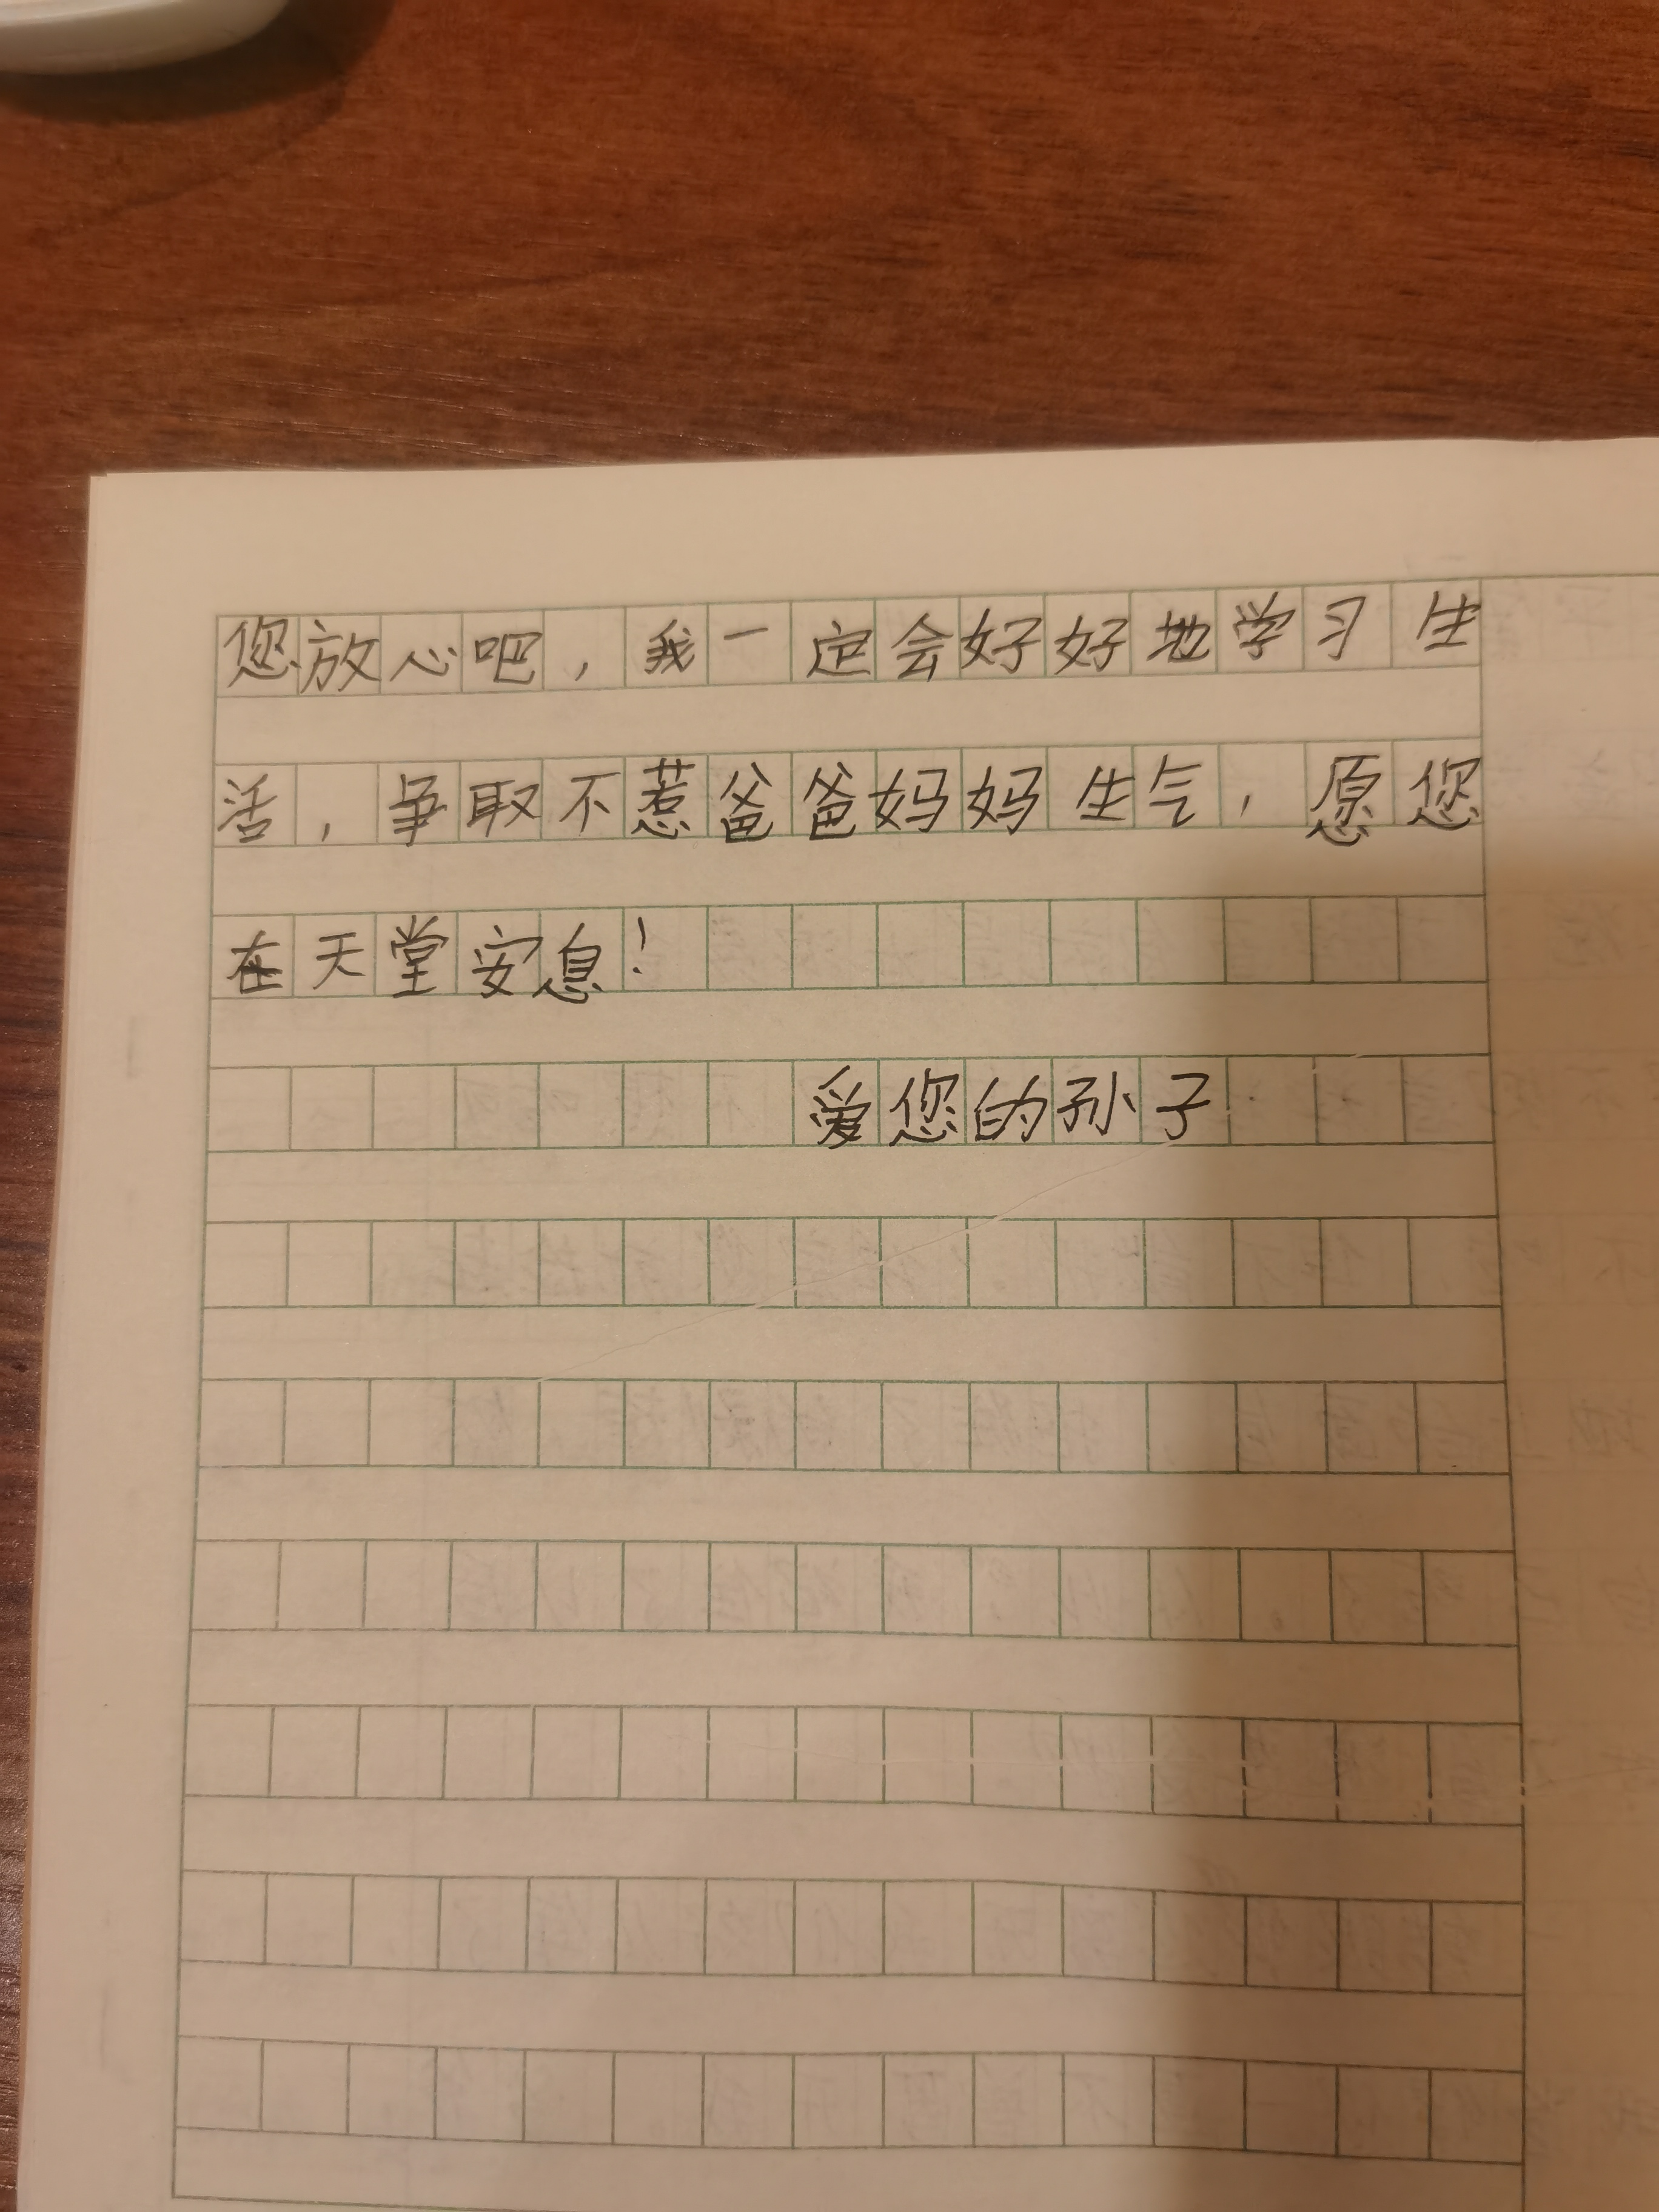 您放心吧，我一定会好好地学习生
活，争取不惹爸爸妈妈生气，愿您
在天堂安息！
爱您的孙子